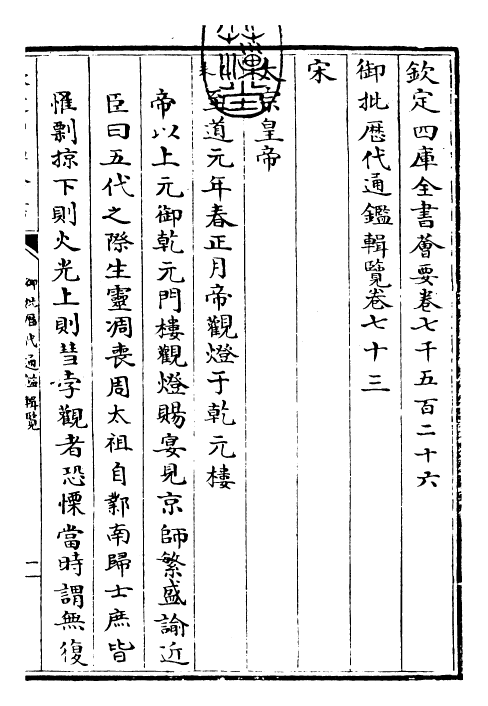 欽定四庫全書薈要卷七千五百二十六
御批歷代通鑑輯覽卷七十三
宋
太宗皇帝
至道元年春正月帝觀燈于乾元樓
帝以上元御乾元門樓觀燈賜宴見京師繁盛諭近
臣曰五代之際生靈凋喪周太祖自鄴南歸士庶皆
罹剽掠下則火光上則彗孛觀者恐慄當時謂無復
御批歷代通鑑輯覽
一